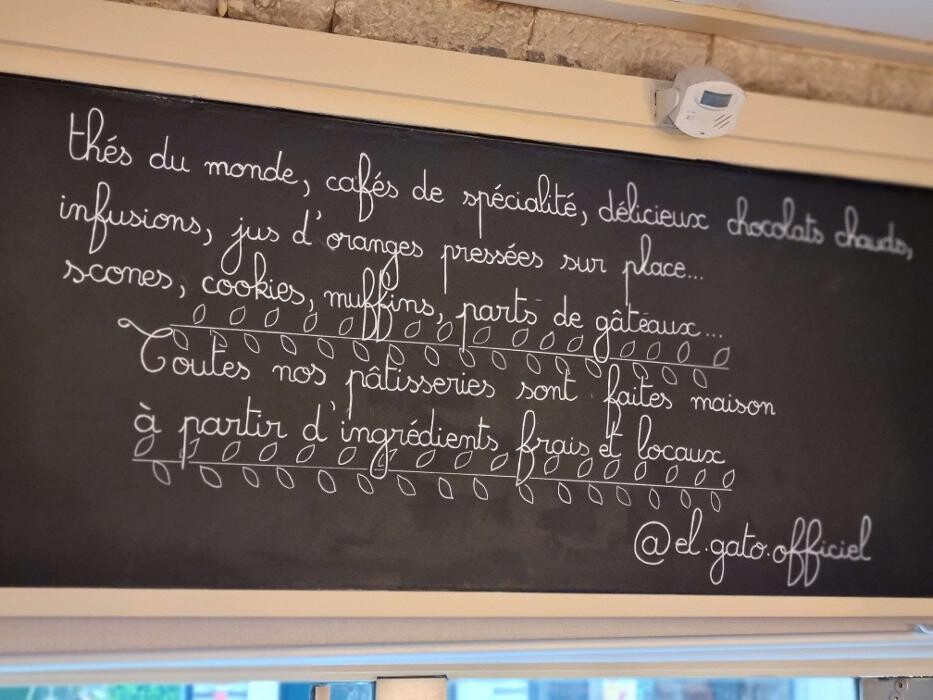 thés du monde, cafés de spécialité, délicieux chocolats chauds,
infusions, jus d'oranges pressées sur place...
scones, cookies, muffins, parts de gâteaux...
Toutes nos pâtisseries sont faites maison
à partir d'ingrédients frais et locaux
@el.gato.officiel